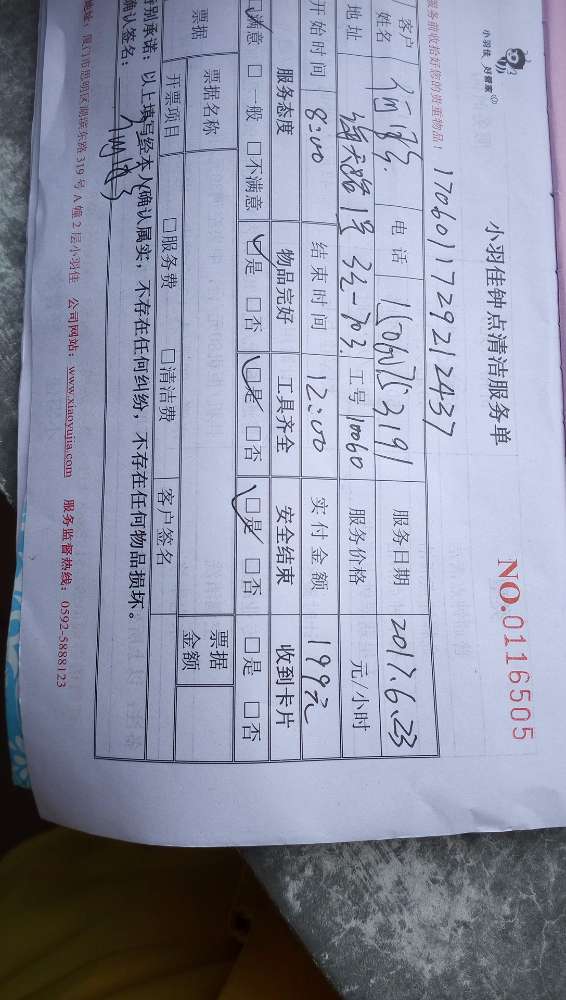 小羽佳 好管家
小羽佳钟点清洁服务单
NO.0116505
服务前收拾好您的贵重物品!
1706011729212437
客户姓名 何 电话 服务日期 2017.6.23
地址 海天路1号 工号 10060 服务价格 元/小时
开始时间 8:00 结束时间 12:00 实付金额 199元
服务态度 物品完好 工具齐全 安全结束 收到卡片
☑满意 □一般 □不满意 ☑是 □否 ☑是 □否 ☑是 □否 □是 □否
票据 票据名称 票据金额
开票项目 □服务费 □清洁费 客户签名
特别承诺:以上填写经本人确认属实,不存在任何纠纷,不存在任何物品损坏。
确认签名:
地址:厦门市思明区湖滨东路319号A幢2层小羽佳 公司网站:www.xiaoyujia.com 服务监督热线:0592-5888123